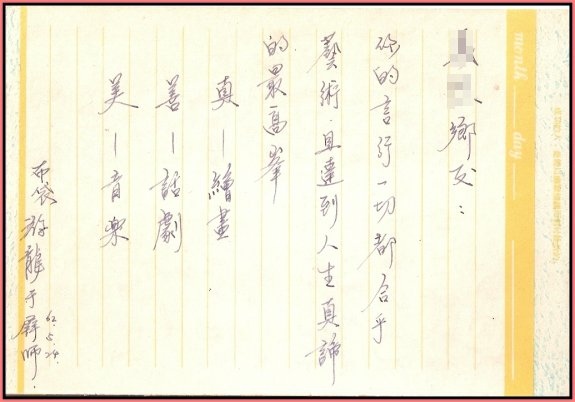 鄉友：
你的言行一切都合乎
藝術.且達到人生真諦
的最高峯
真—繪畫
善—話劇
美—音樂
布袋游龍于屏師.
62.5.24.
month day